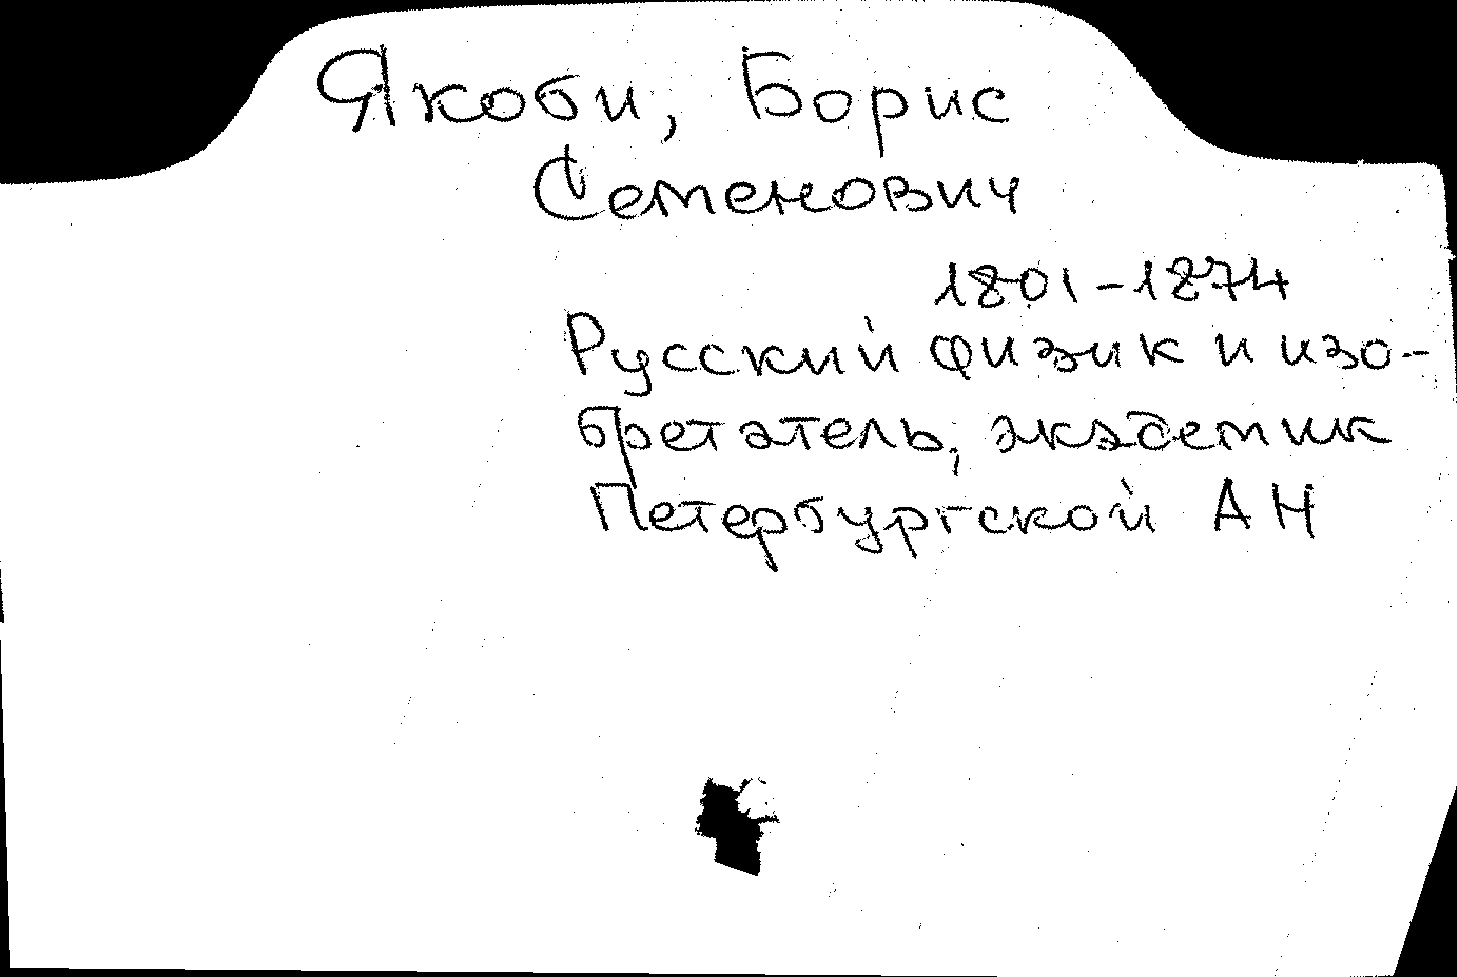 Якоби, Борис
Семенович
1801-1874
Русский физик и изо-
бретатель, академик
Петербургской АН